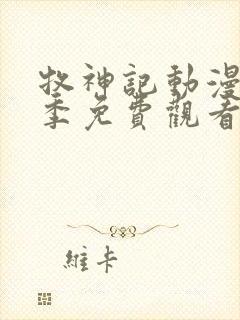 牧神記動漫
季免費觀看
維卡